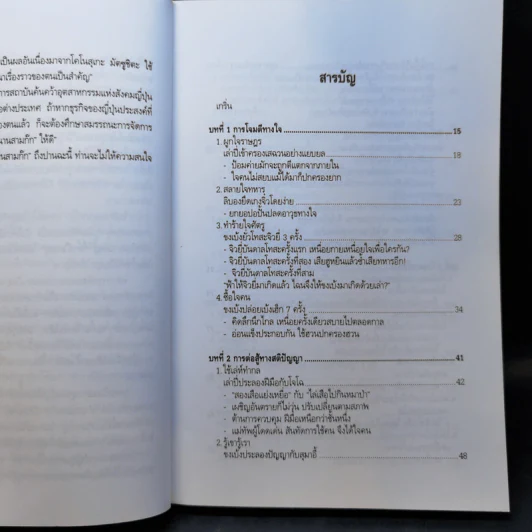 เป็นผลอันเนื่องมาจากโคโนสุเกะ มัตซูชิตะ ใช้
นาเรื่องราวของตนเป็นสำคัญ"
การสถาบันค้นคว้าอุตสาหกรรมแห่งสังคมญี่ปุ่น
อต่างประเทศ ถ้าหากธุรกิจของญี่ปุ่นประสงค์ที่
องตนแล้ว ก็จะต้องศึกษาสมรรถนะการจัดการ
นานสามก๊ก" ให้ดี"
นสามก๊ก" ถึงปานฉะนี้ ท่านจะไม่ให้ความสนใจ
สารบัญ
เกริ่น
บทที่ 1 การโจมตีทางใจ 15
1. ผูกใจราษฎร
เล่าปี่เข้าครองเสฉวนอย่างแยบยล 18
- ป้อมค่ายมักจะถูกตีแตกจากภายใน
- ใจคนไม่สยบแม้ได้มาก็ปกครองยาก
2. สลายใจทหาร
ลิบองยึดเกงจิ๋วโดยง่าย 23
- ยกยอปอปั้นปลดอาวุธทางใจ
3. ทำร้ายใจศัตรู
ขงเบ้งยั่วโทสะจิวยี่ 3 ครั้ง 28
- จิวยี่บันดาลโทสะครั้งแรก เหนื่อยกายเหนื่อยใจเพื่อใครกัน?
- จิวยี่บันดาลโทสะครั้งที่สอง เสียฮูหยินแล้วซ้ำเสียทหารอีก!
- จิวยี่บันดาลโทสะครั้งที่สาม
"ฟ้าให้จิวยี่มาเกิดแล้ว ไฉนจึงให้ขงเบ้งมาเกิดด้วยเล่า?"
4. ซื้อใจคน
ขงเบ้งปล่อยเบ้งเฮ็ก 7 ครั้ง 34
- คิดลึกนึกไกล เหนื่อยครั้งเดียวสบายไปตลอดกาล
- อ่อนแข็งประกอบกัน ใช้ฮวนปกครองฮวน
บทที่ 2 การต่อสู้ทางสติปัญญา 41
1. ใช้เล่ห์ทำกล
เล่าปี่ประลองฝีมือกับโจโฉ 42
- "สองเสือแย่งเหยื่อ" กับ "ไล่เสือไปกินหมาป่า"
- เผชิญอันตรายก็ไม่วุ่น ปรับเปลี่ยนตามสภาพ
- ด้านการควบคุม ฝีมือเหนือกว่าชั้นหนึ่ง
- แม่ทัพผู้โดดเด่น สันทัดการใช้คน จึงได้ใจคน
2. รู้เขารู้เรา
ขงเบ้งประลองปัญญากับสุมาอี้ 48